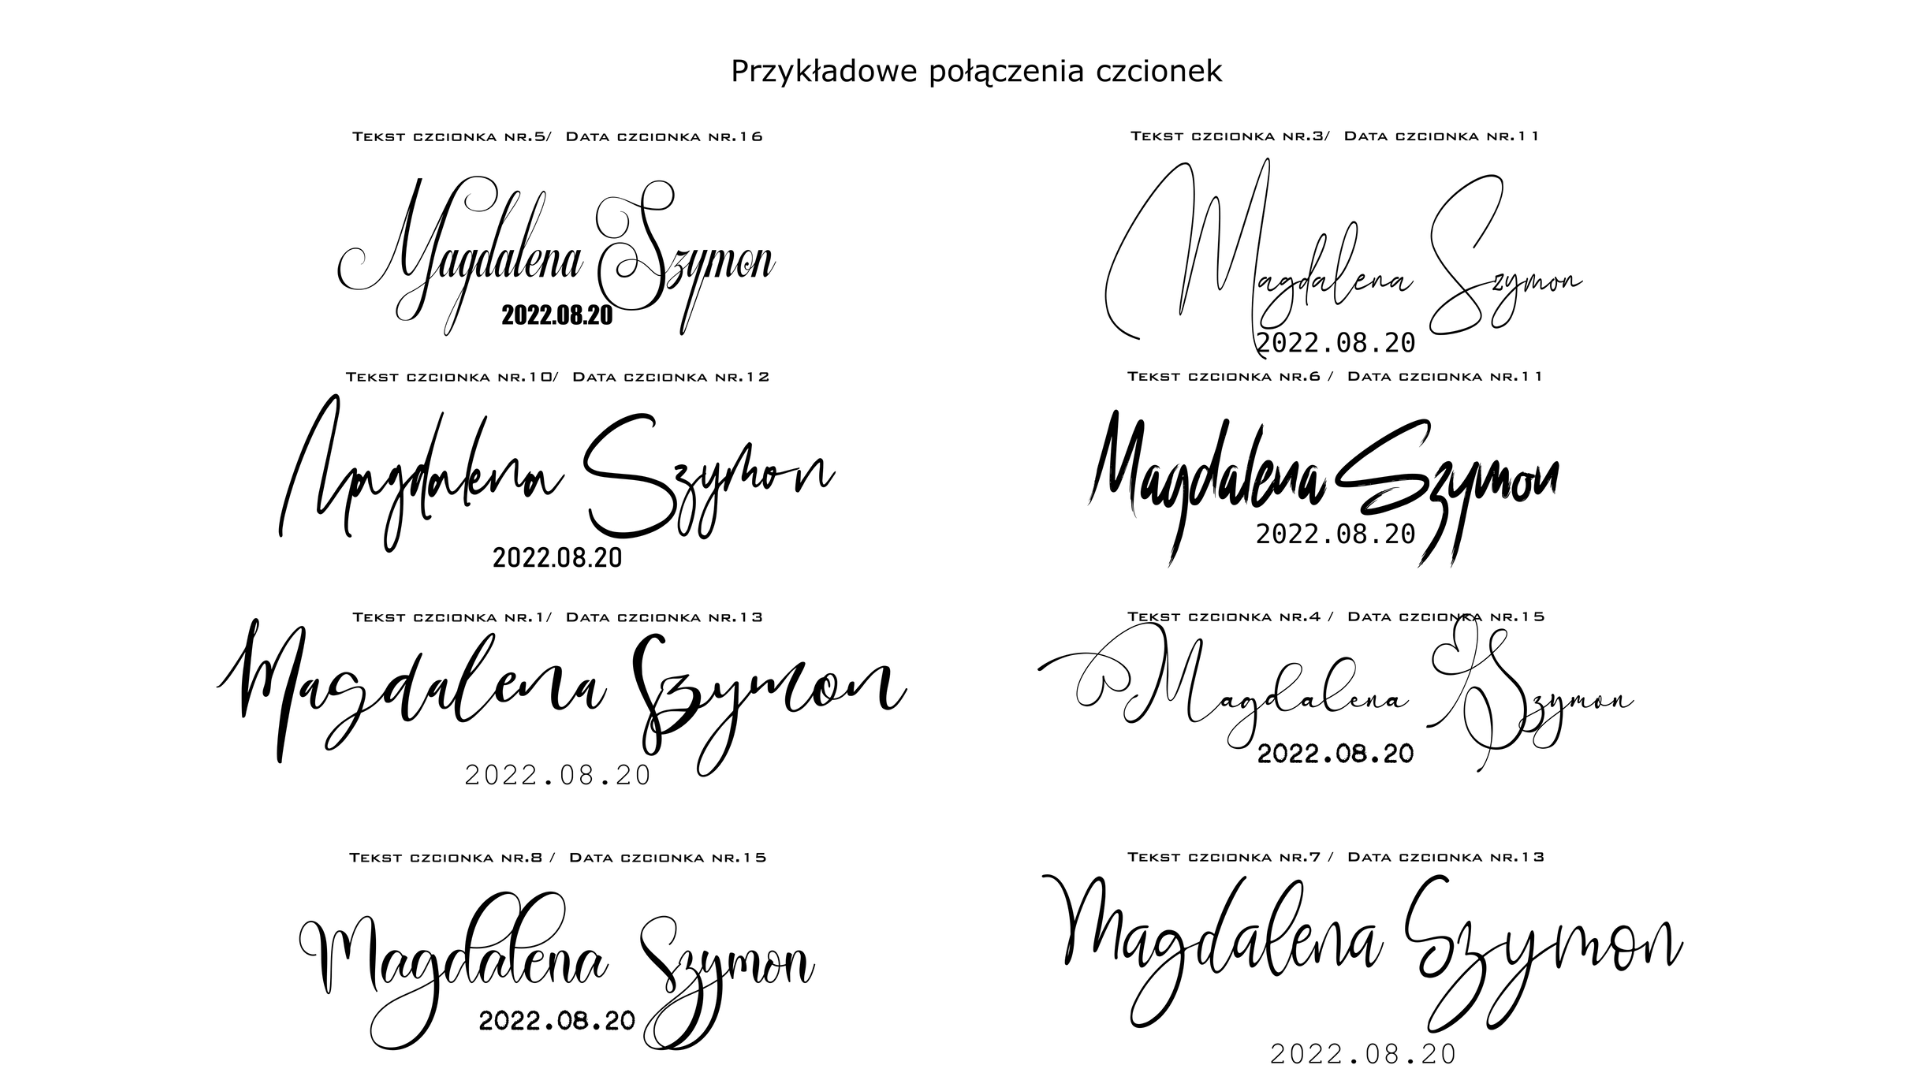 Przykładowe połączenia czcionek
Tekst czcionka nr.5/ Data czcionka nr.16
Magdalena Szymon
2022.08.20
Tekst czcionka nr.3/ Data czcionka nr.11
Magdalena Szymon
2022.08.20
Tekst czcionka nr.10/ Data czcionka nr.12
Magdalena Szymon
2022.08.20
Tekst czcionka nr.6 / Data czcionka nr.11
Magdalena Szymon
2022.08.20
Tekst czcionka nr.1/ Data czcionka nr.13
Magdalena Szymon
2022.08.20
Tekst czcionka nr.4 / Data czcionka nr.15
Magdalena Szymon
2022.08.20
Tekst czcionka nr.8 / Data czcionka nr.15
Magdalena Szymon
2022.08.20
Tekst czcionka nr.7 / Data czcionka nr.13
Magdalena Szymon
2022.08.20